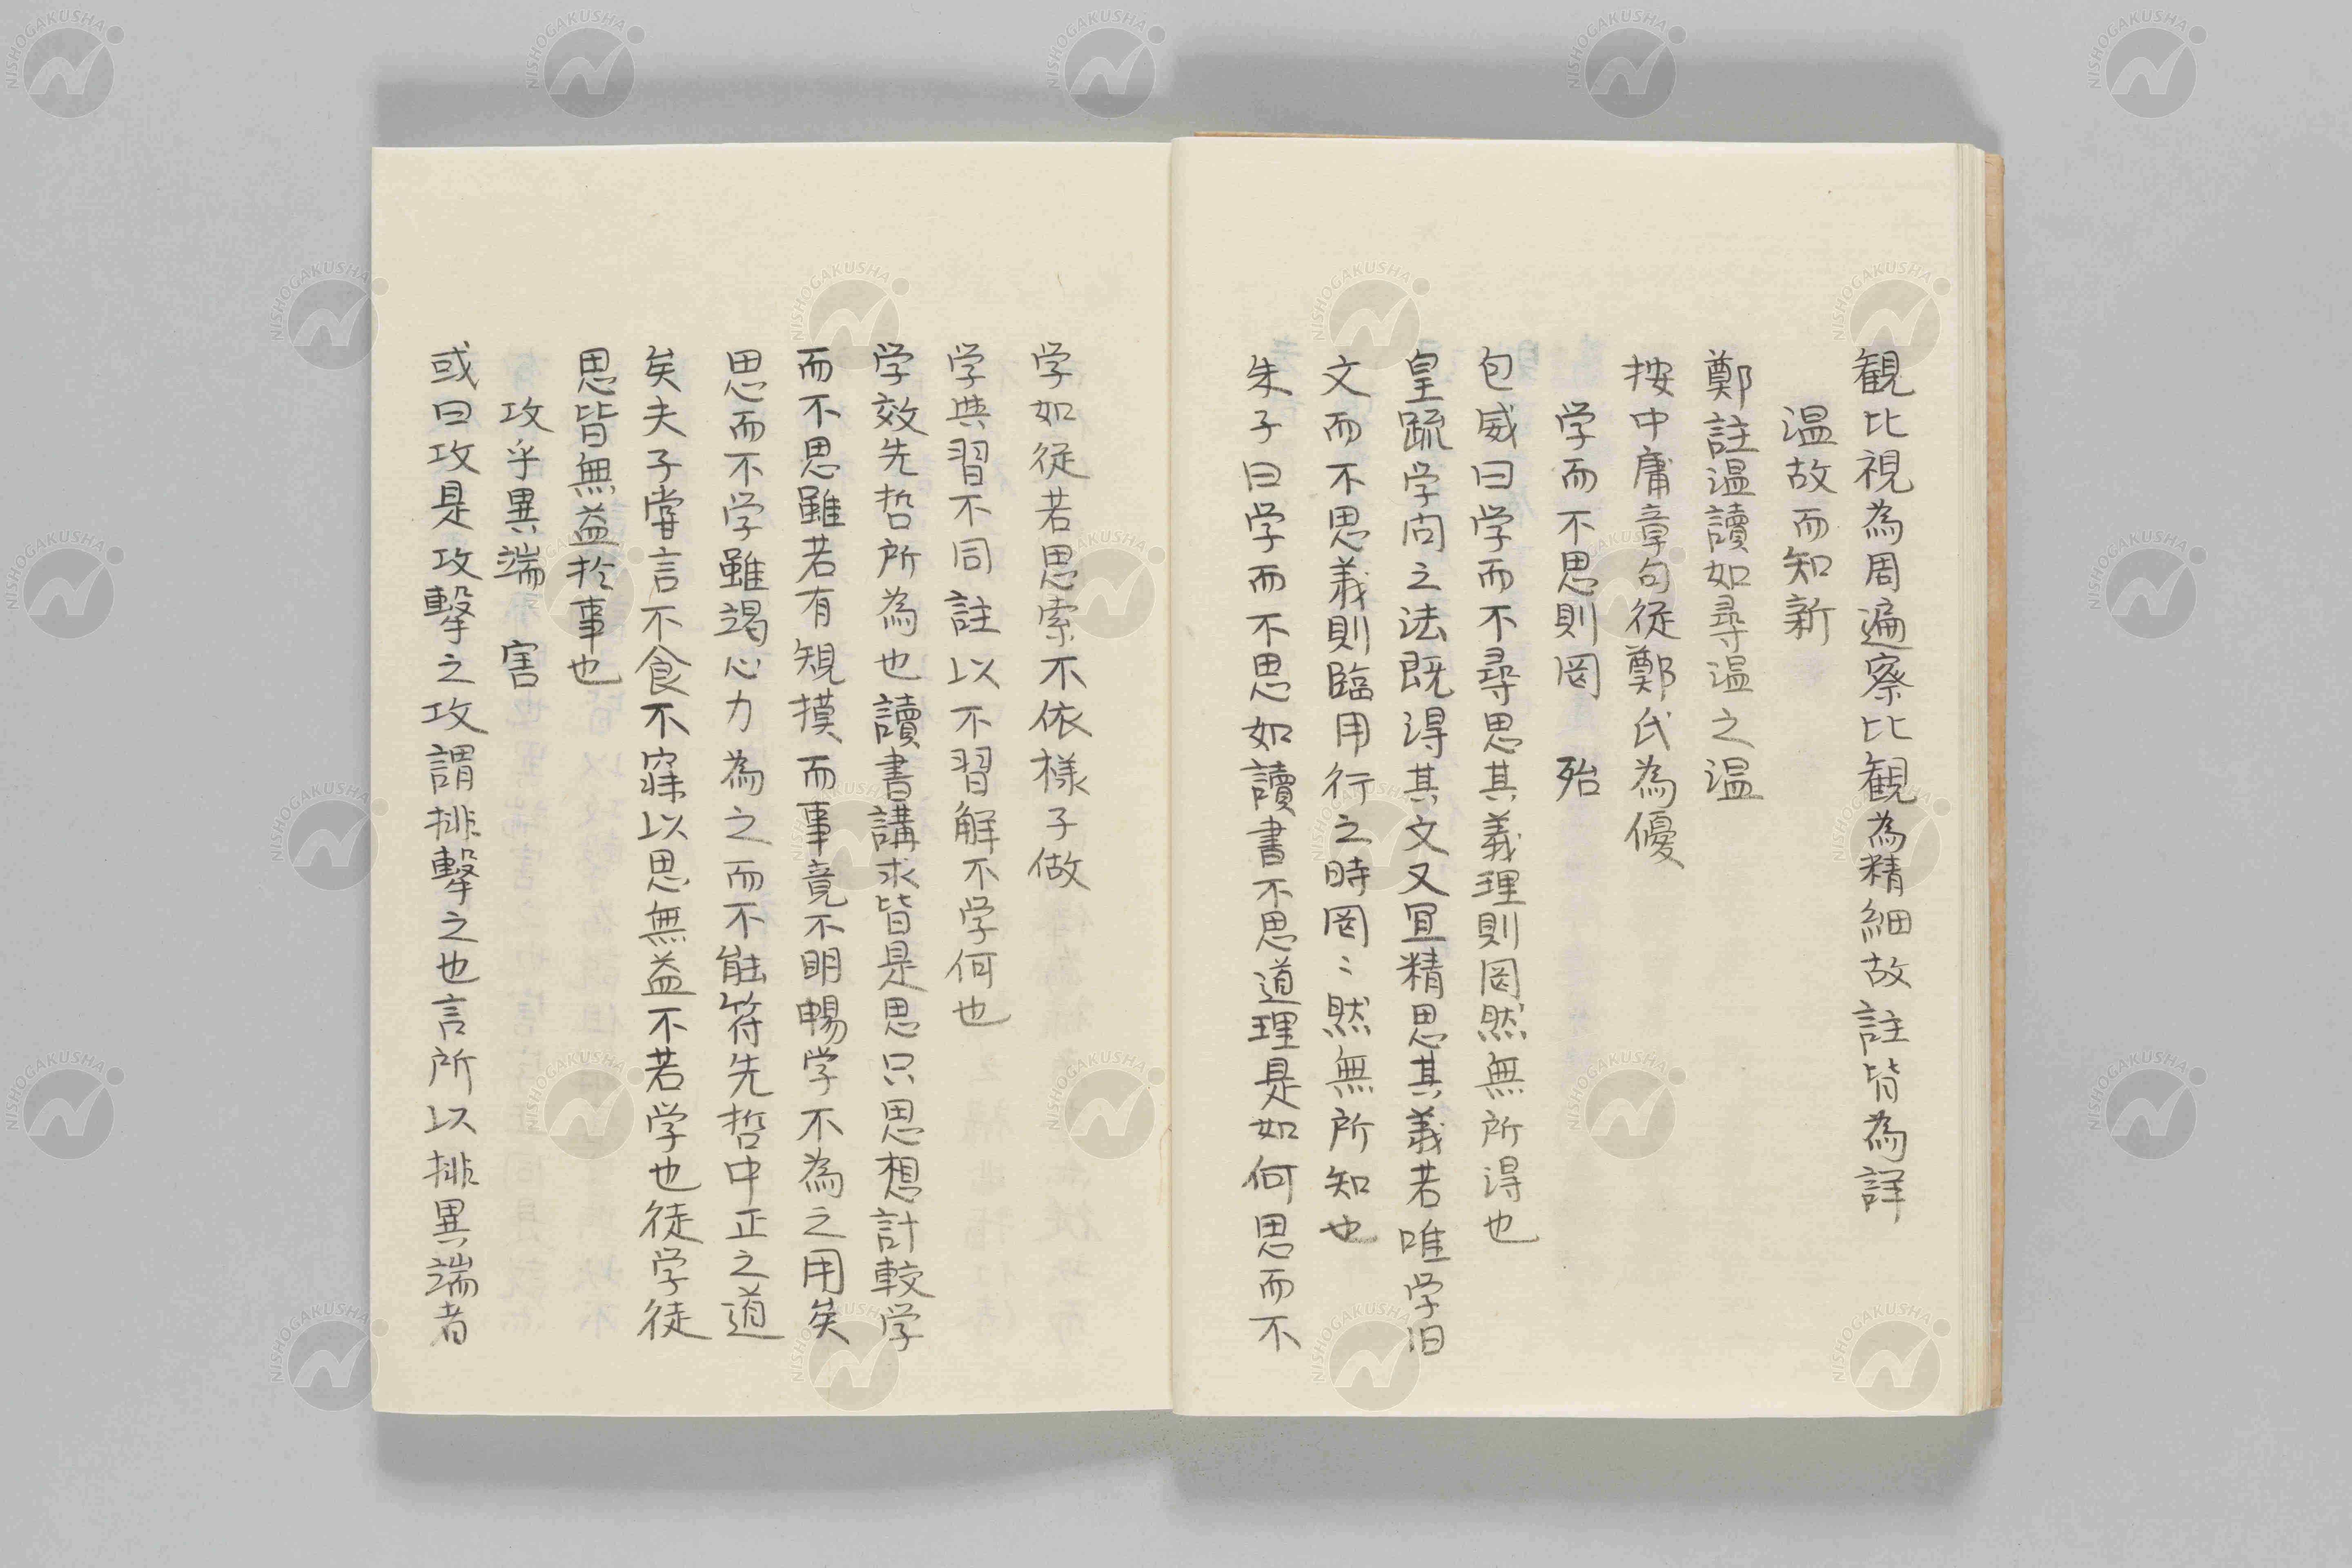 観比視為周遍察比観為精細故註皆為詳
温故而知新
鄭註温讀如尋温之温
按中庸章句従鄭氏為優
学而不思則罔 殆
包咸曰学而不尋思其義理則罔然無所得也
皇疏学问之法既得其文又宜精思其義若唯学旧
文而不思義則臨用行之時罔〻然無所知也
朱子曰学而不思如讀書不思道理是如何思而不
学如従若思索不依様子做
学與習不同註以不習解不学何也
学效先哲所為也讀書講求皆是思只思想計較学
而不思雖若有規摸而事竟不明暢学不為之用矣
思而不学雖竭心力為之而不能符先哲中正之道
矣夫子嘗言不食不寐以思無益不若学也徒学徒
思皆無益於事也
攻乎異端 害
或曰攻是攻擊之攻謂排擊之也言所以排異端者
NISHOGAKUSHA